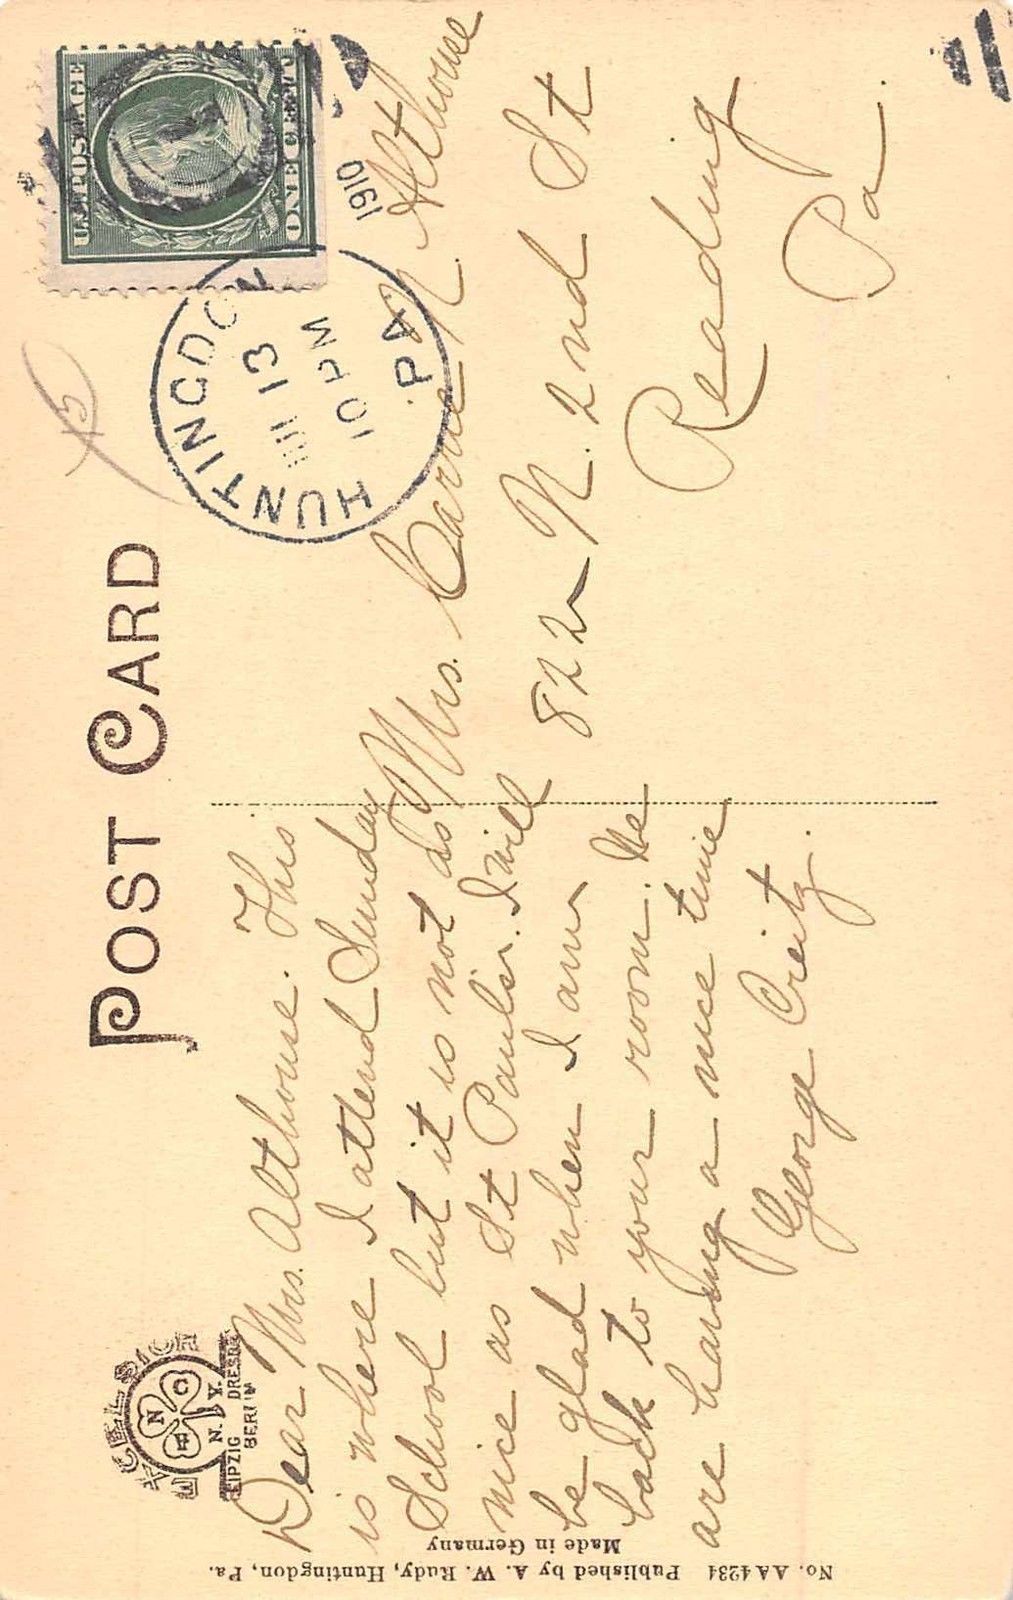 POST CARD
EXCELSIOR
N
C
N. Y.
LEIPZIG DRESDEN
BERLIN
U.S. POSTAGE
ONE CENT
HUNTINGDON
13
10 PM
1910
PA.
Dear Mrs. Althouse. This
is where I attend Sunday
School but it is not as
nice as St Pauls. I will
be glad when I am
back to your room. We
are having a nice time
George Creitz.
Mrs. Carrie N Althouse
822 N. 2nd St
Reading
Pa.
No. AA4234 Published by A. W. Rudy, Huntingdon, Pa.
Made in Germany